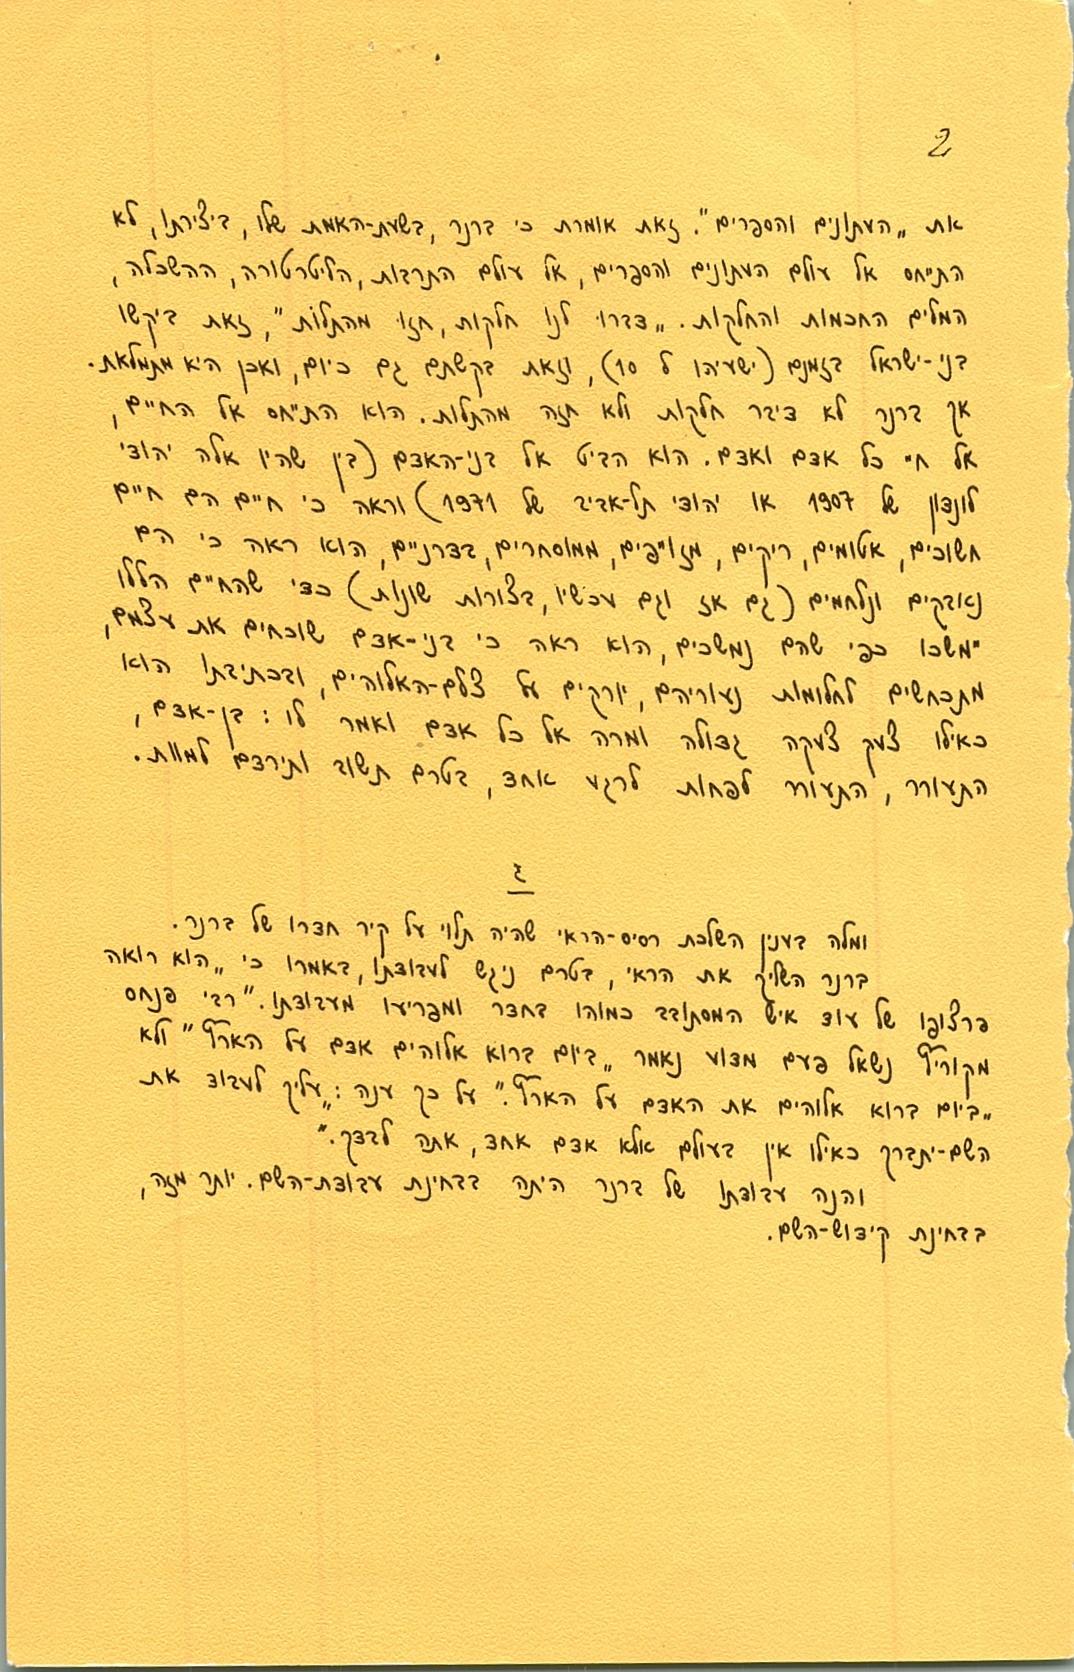 2
את „העתונים והספרים". זאת אומרת כי ברנר, בשעת-האמת שלו, ביצירתו, לא
התייחס אל עולם העתונים והספרים, אל עולם התרבות, הליטרטורה, ההשכלה,
המלים החכמות והחלקות. „דברו לנו חלקות, חזו מהתלות", זאת ביקשו
בני-ישראל בזמנם (ישעיהו ל 10), וזאת בקשתם גם כיום, ואכן היא מתמלאת.
אך ברנר לא דיבר חלקות ולא חזה מהתלות. הוא התייחס אל החיים,
אל חיי כל אדם ואדם. הוא הביט אל בני-האדם (בין שהיו אלה יהודי
לונדון של 1907 או יהודי תל-אביב של 1971) וראה כי חיים הם חיים
חשוכים, אטומים, ריקים, מזוייפים, ממוסחרים, בדרניים, הוא ראה כי הם
נאבקים ונלחמים (גם אז וגם עכשיו, בצורות שונות) כדי שהחיים הללו
יימשכו כפי שהם נמשכים, הוא ראה כי בני-אדם שוכחים את עצמם,
מתכחשים לחלומות נעוריהם, יורקים על צלם-האלוהים, ובכתיבתו הוא
כאילו צעק צעקה גדולה ומרה אל כל אדם ואמר לו: בן-אדם,
התעורר, התעורר לפחות לרגע אחד, בטרם תשוב ותירדם למוות.
ג
ומלה בענין השלכת רסיס-הראי שהיה תלוי על קיר חדרו של ברנר.
ברנר השליך את הראי, בטרם ניגש לעבודתו, באמרו כי „הוא רואה
פרצופו של עוד איש המסתובב כמוהו בחדר ומפריעו מעבודתו." רבי פנחס
מקוריץ נשאל פעם מדוע נאמר „ביום ברוא אלוהים אדם על הארץ" ולא
„ביום ברוא אלוהים את האדם על הארץ". על כך ענה: „עליך לעבוד את
השם-יתברך כאילו אין בעולם אלא אדם אחד, אתה לבדך."
והנה עבודתו של ברנר היתה בבחינת עבודת-השם. יותר מזה,
בבחינת קידוש-השם.